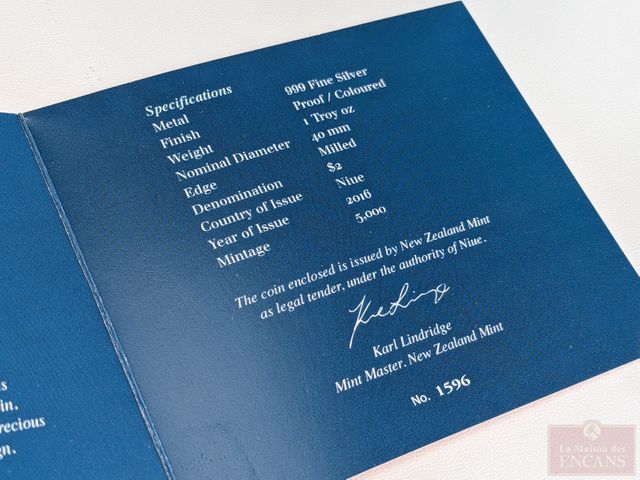 Specifications
Metal 999 Fine Silver
Finish Proof / Coloured
Weight 1 Troy oz
Nominal Diameter 40 mm
Edge Milled
Denomination $2
Country of Issue Niue
Year of Issue 2016
Mintage 5,000
The coin enclosed is issued by New Zealand Mint
as legal tender, under the authority of Niue.
Karl Lindridge
Mint Master, New Zealand Mint
No. 1596
La Maison des
ENCANS